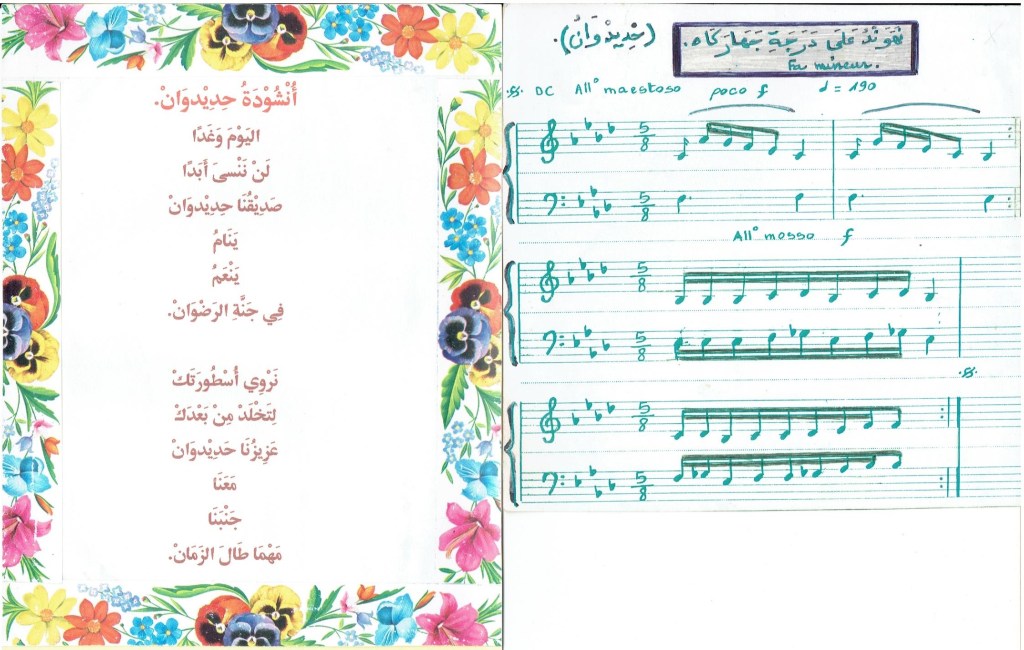 أُنْشُودَةُ حِدِيدوَانْ.
اليَوْمَ وَغَدًا
لَنْ نَنْسَى أَبَدًا
صَدِيْقُنَا حِدِيْدوَانْ
يَنَامُ
يَنْعَمُ
فِي جَنَّةِ الرَضْوَانْ.
نَرْوِي أُسْطُورَتَكْ
لِتَخْلَدَ مِنْ بَعْدَكْ
عَزِيزُنَا حَدِيْدوَانْ
مَعَنَا
جَنْبَنَا
مَهْمَا طَالَ الزَمَانْ.
نَهَوَنْدُ عَلَى دَرَجَةِ جَهَارَكَاه.
Fa mineur.
(حِدِيدْوَانْ).
DC All° maestoso poco f = 190
5/8
5/8
All° mosso f
5/8
5/8
5/8
5/8